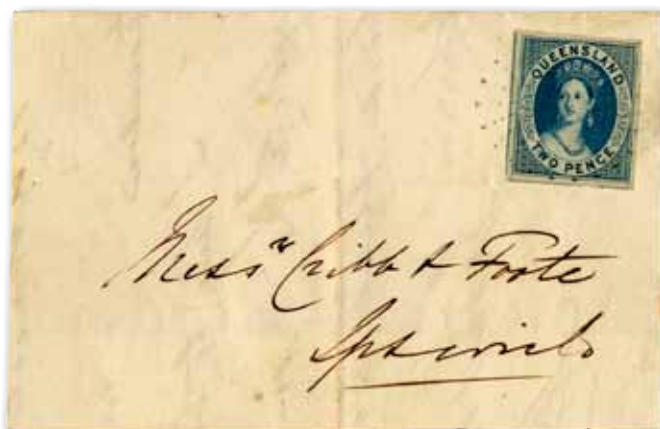 QUEENSLAND
TWO PENCE
Mess<sup>rs</sup> Cribb & Foote
Ipswich